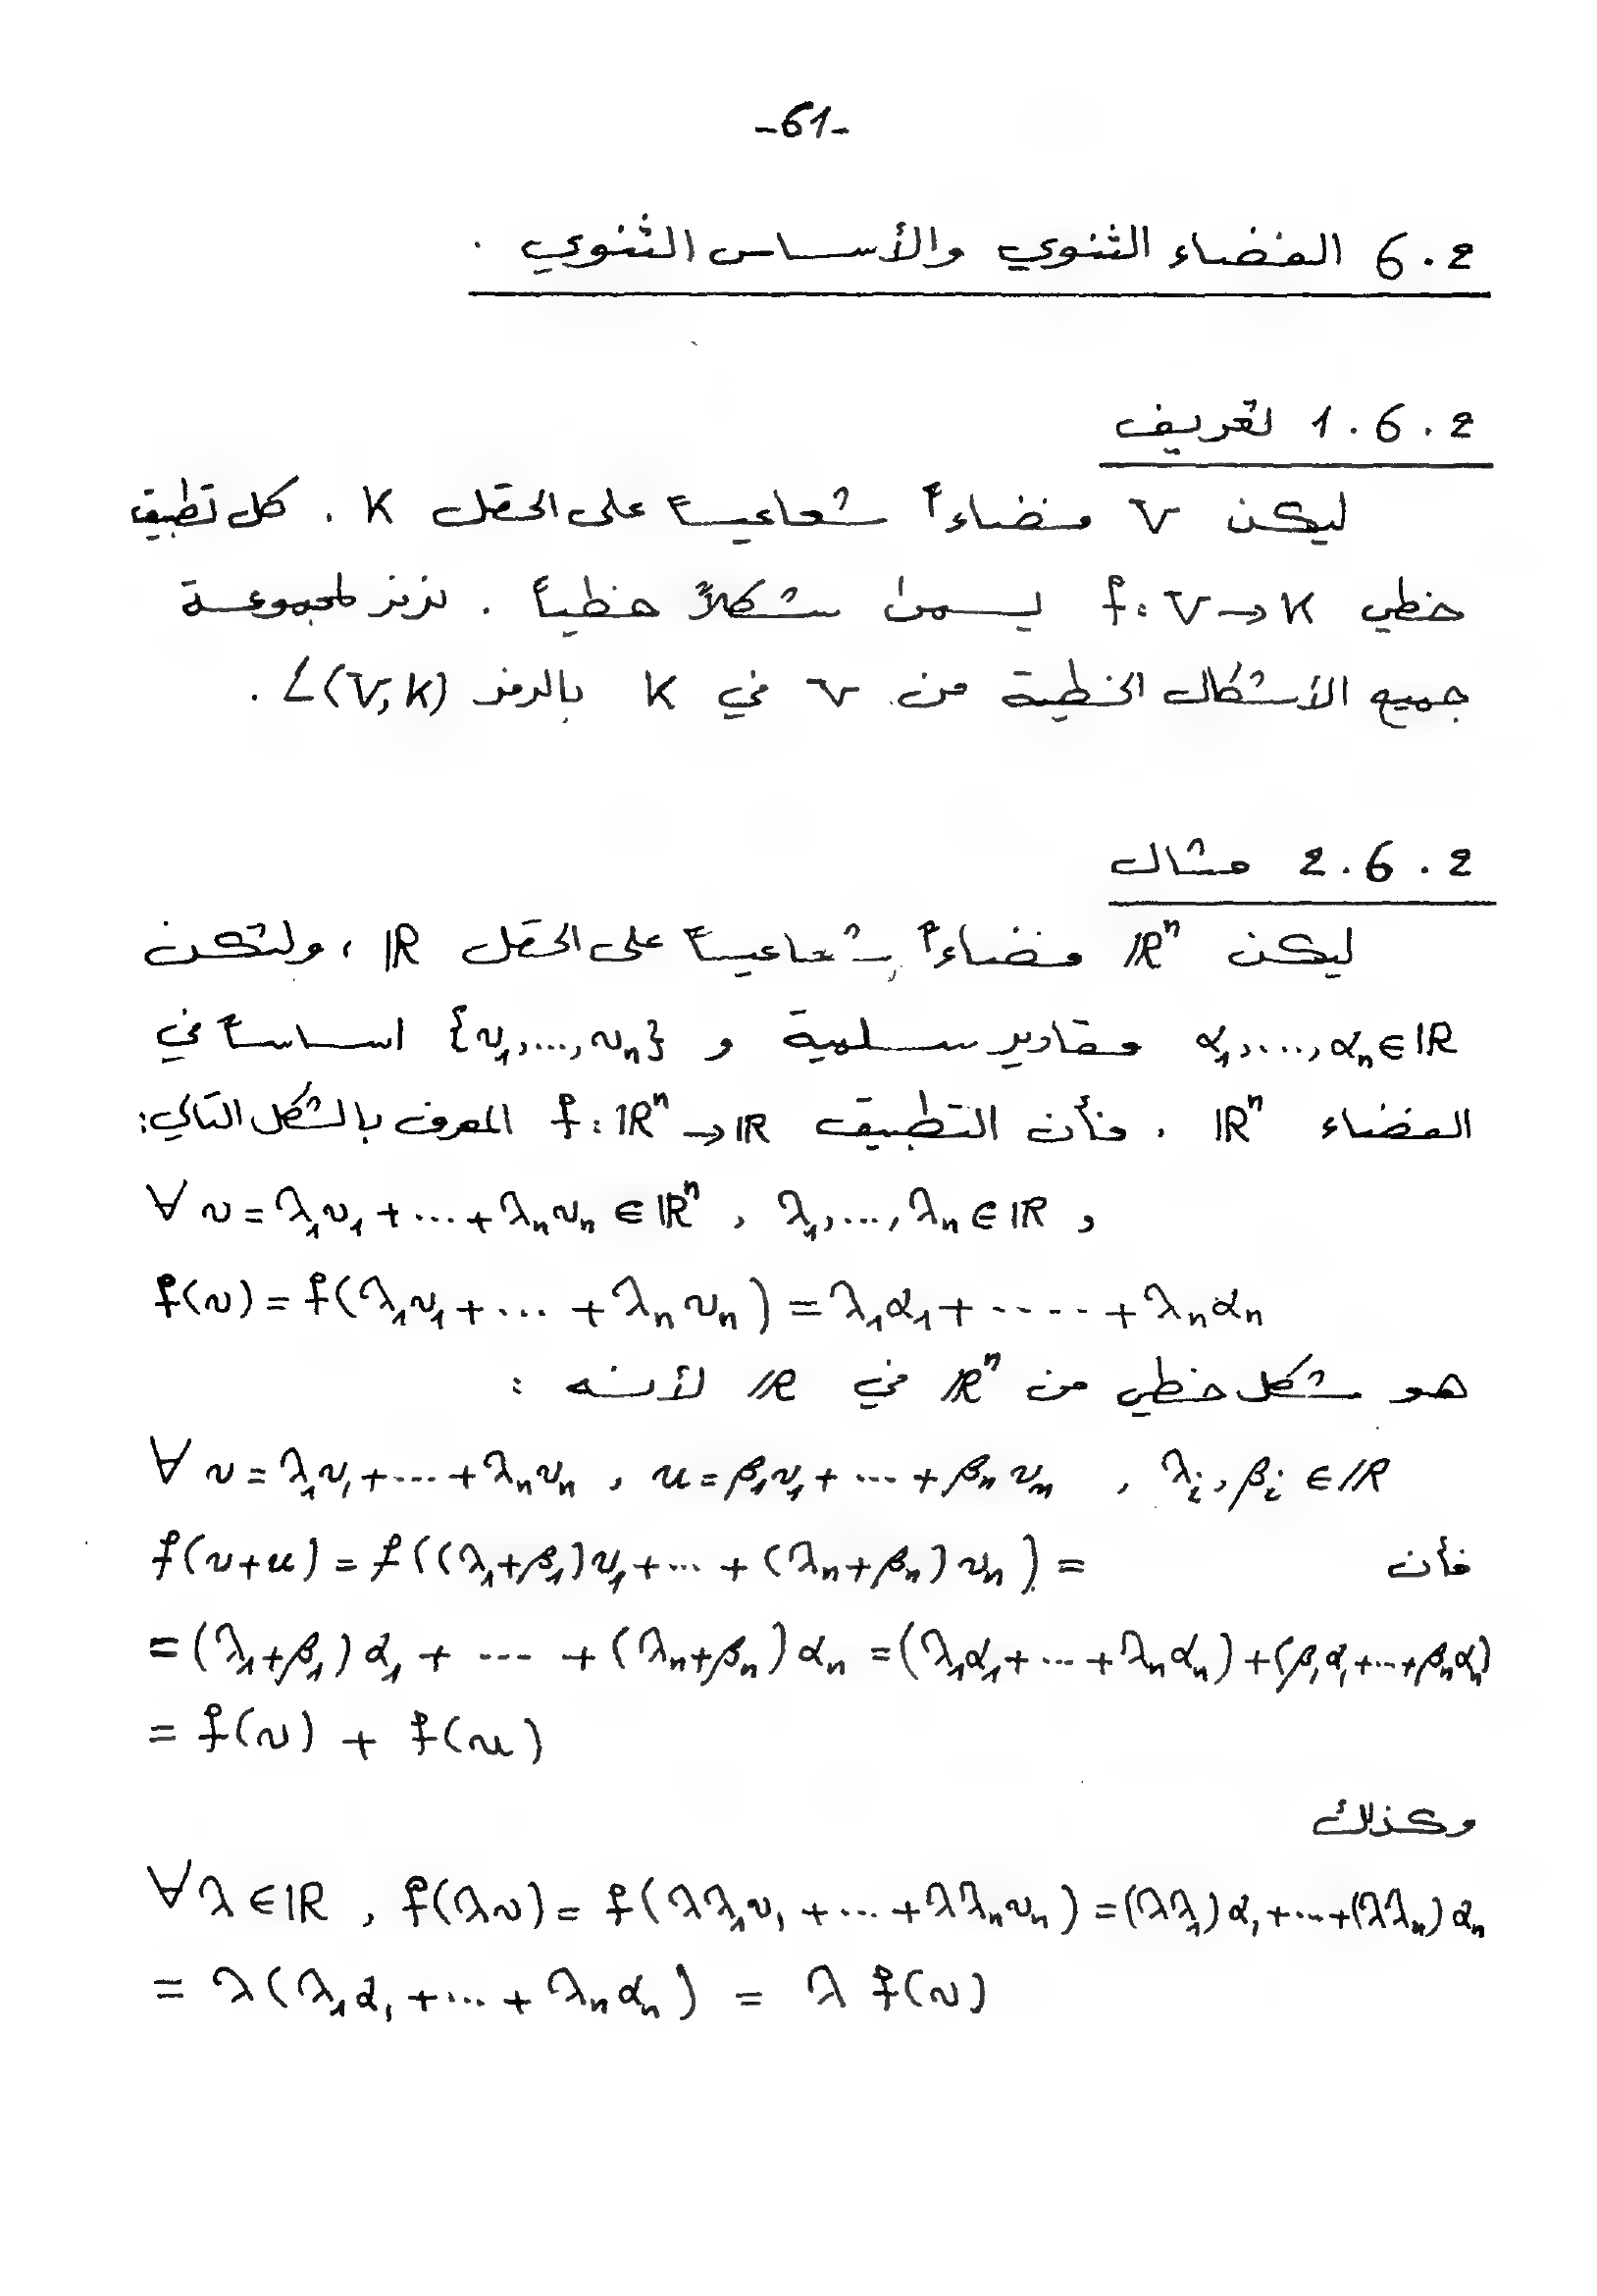 -61-
6.2 الفضاء الثنوي والأساس الثنوي .
1.6.2 تعريف
ليكن V فضاءً شعاعياً على الحقل K . كل تطبيق
خطي f: V → K يسمى شكلاً خطياً . نرمز لمجموعة
جميع الأشكال الخطية من V في K بالرمز L(V, K) .
2.6.2 مثال
ليكن ℝⁿ فضاءً شعاعياً على الحقل ℝ ، ولتكن
α₁, ..., αₙ ∈ ℝ مقادير سلمية و {v₁, ..., vₙ} اساساً في
الفضاء ℝⁿ . فأن التطبيق f: ℝⁿ → ℝ المعرف بالشكل التالي:
∀ v = λ₁v₁ + ... + λₙvₙ ∈ ℝⁿ , λ₁, ..., λₙ ∈ ℝ ,
f(v) = f(λ₁v₁ + ... + λₙvₙ) = λ₁α₁ + ----- + λₙαₙ
هو شكل خطي من ℝⁿ في ℝ لأنه :
∀ v = λ₁v₁ + ... + λₙvₙ , u = β₁v₁ + ... + βₙvₙ , λᵢ, βᵢ ∈ ℝ
فأن f(v+u) = f((λ₁+β₁)v₁ + ... + (λₙ+βₙ)vₙ) =
= (λ₁+β₁)α₁ + --- + (λₙ+βₙ)αₙ = (λ₁α₁ + ... + λₙαₙ) + (β₁α₁ + ... + βₙαₙ)
= f(v) + f(u)
وكذلك
∀ λ ∈ ℝ , f(λv) = f(λλ₁v₁ + ... + λλₙvₙ) = (λλ₁)α₁ + ... + (λλₙ)αₙ
= λ(λ₁α₁ + ... + λₙαₙ) = λ f(v)